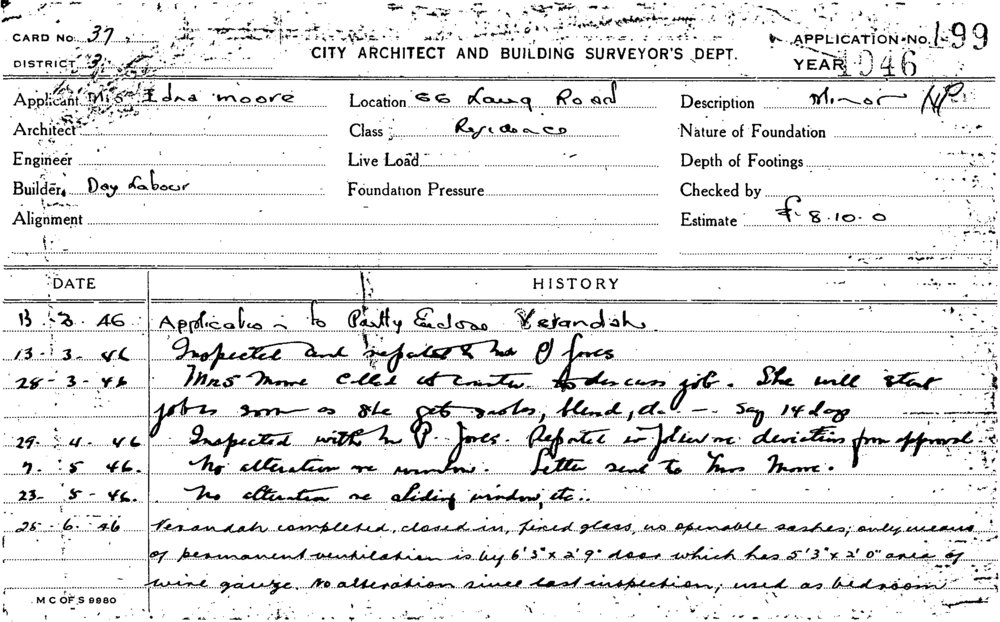 CARD No. 37
DISTRICT 3
CITY ARCHITECT AND BUILDING SURVEYOR'S DEPT.
APPLICATION No. 199
YEAR 1946
Applicant Mrs Edna Moore
Location 66 Road
Description Minor
Architect
Class Residence
Nature of Foundation
Engineer
Live Load
Depth of Footings
Builder Day Labour
Foundation Pressure
Checked by
Alignment
Estimate £ 8.10.0
DATE HISTORY
13 - 2 - 46 Application to Partly Enclose Verandah
13 - 3 - 46 Inspected and reported to Mr P Jones
28 - 3 - 46 Mrs Moore called at counter to discuss job. She will start
job as soon as she gets sashes, blind, etc — Say 14 days
29 - 4 - 46 Inspected with Mr P. Jones. Reported re deviation from approval.
7. 5 46. No alteration re window. Letter sent to Mrs Moore.
23 - 5 - 46. No alteration re sliding window, etc..
25 - 6. 46 Verandah completed, closed in, fixed glass, no openable sashes; only means
of permanent ventilation is by 6'3" x 2'9" door which has 5'3" x 2'0" area of
wire gauze. No alteration since last inspection; used as bedroom
M C OF S 9980